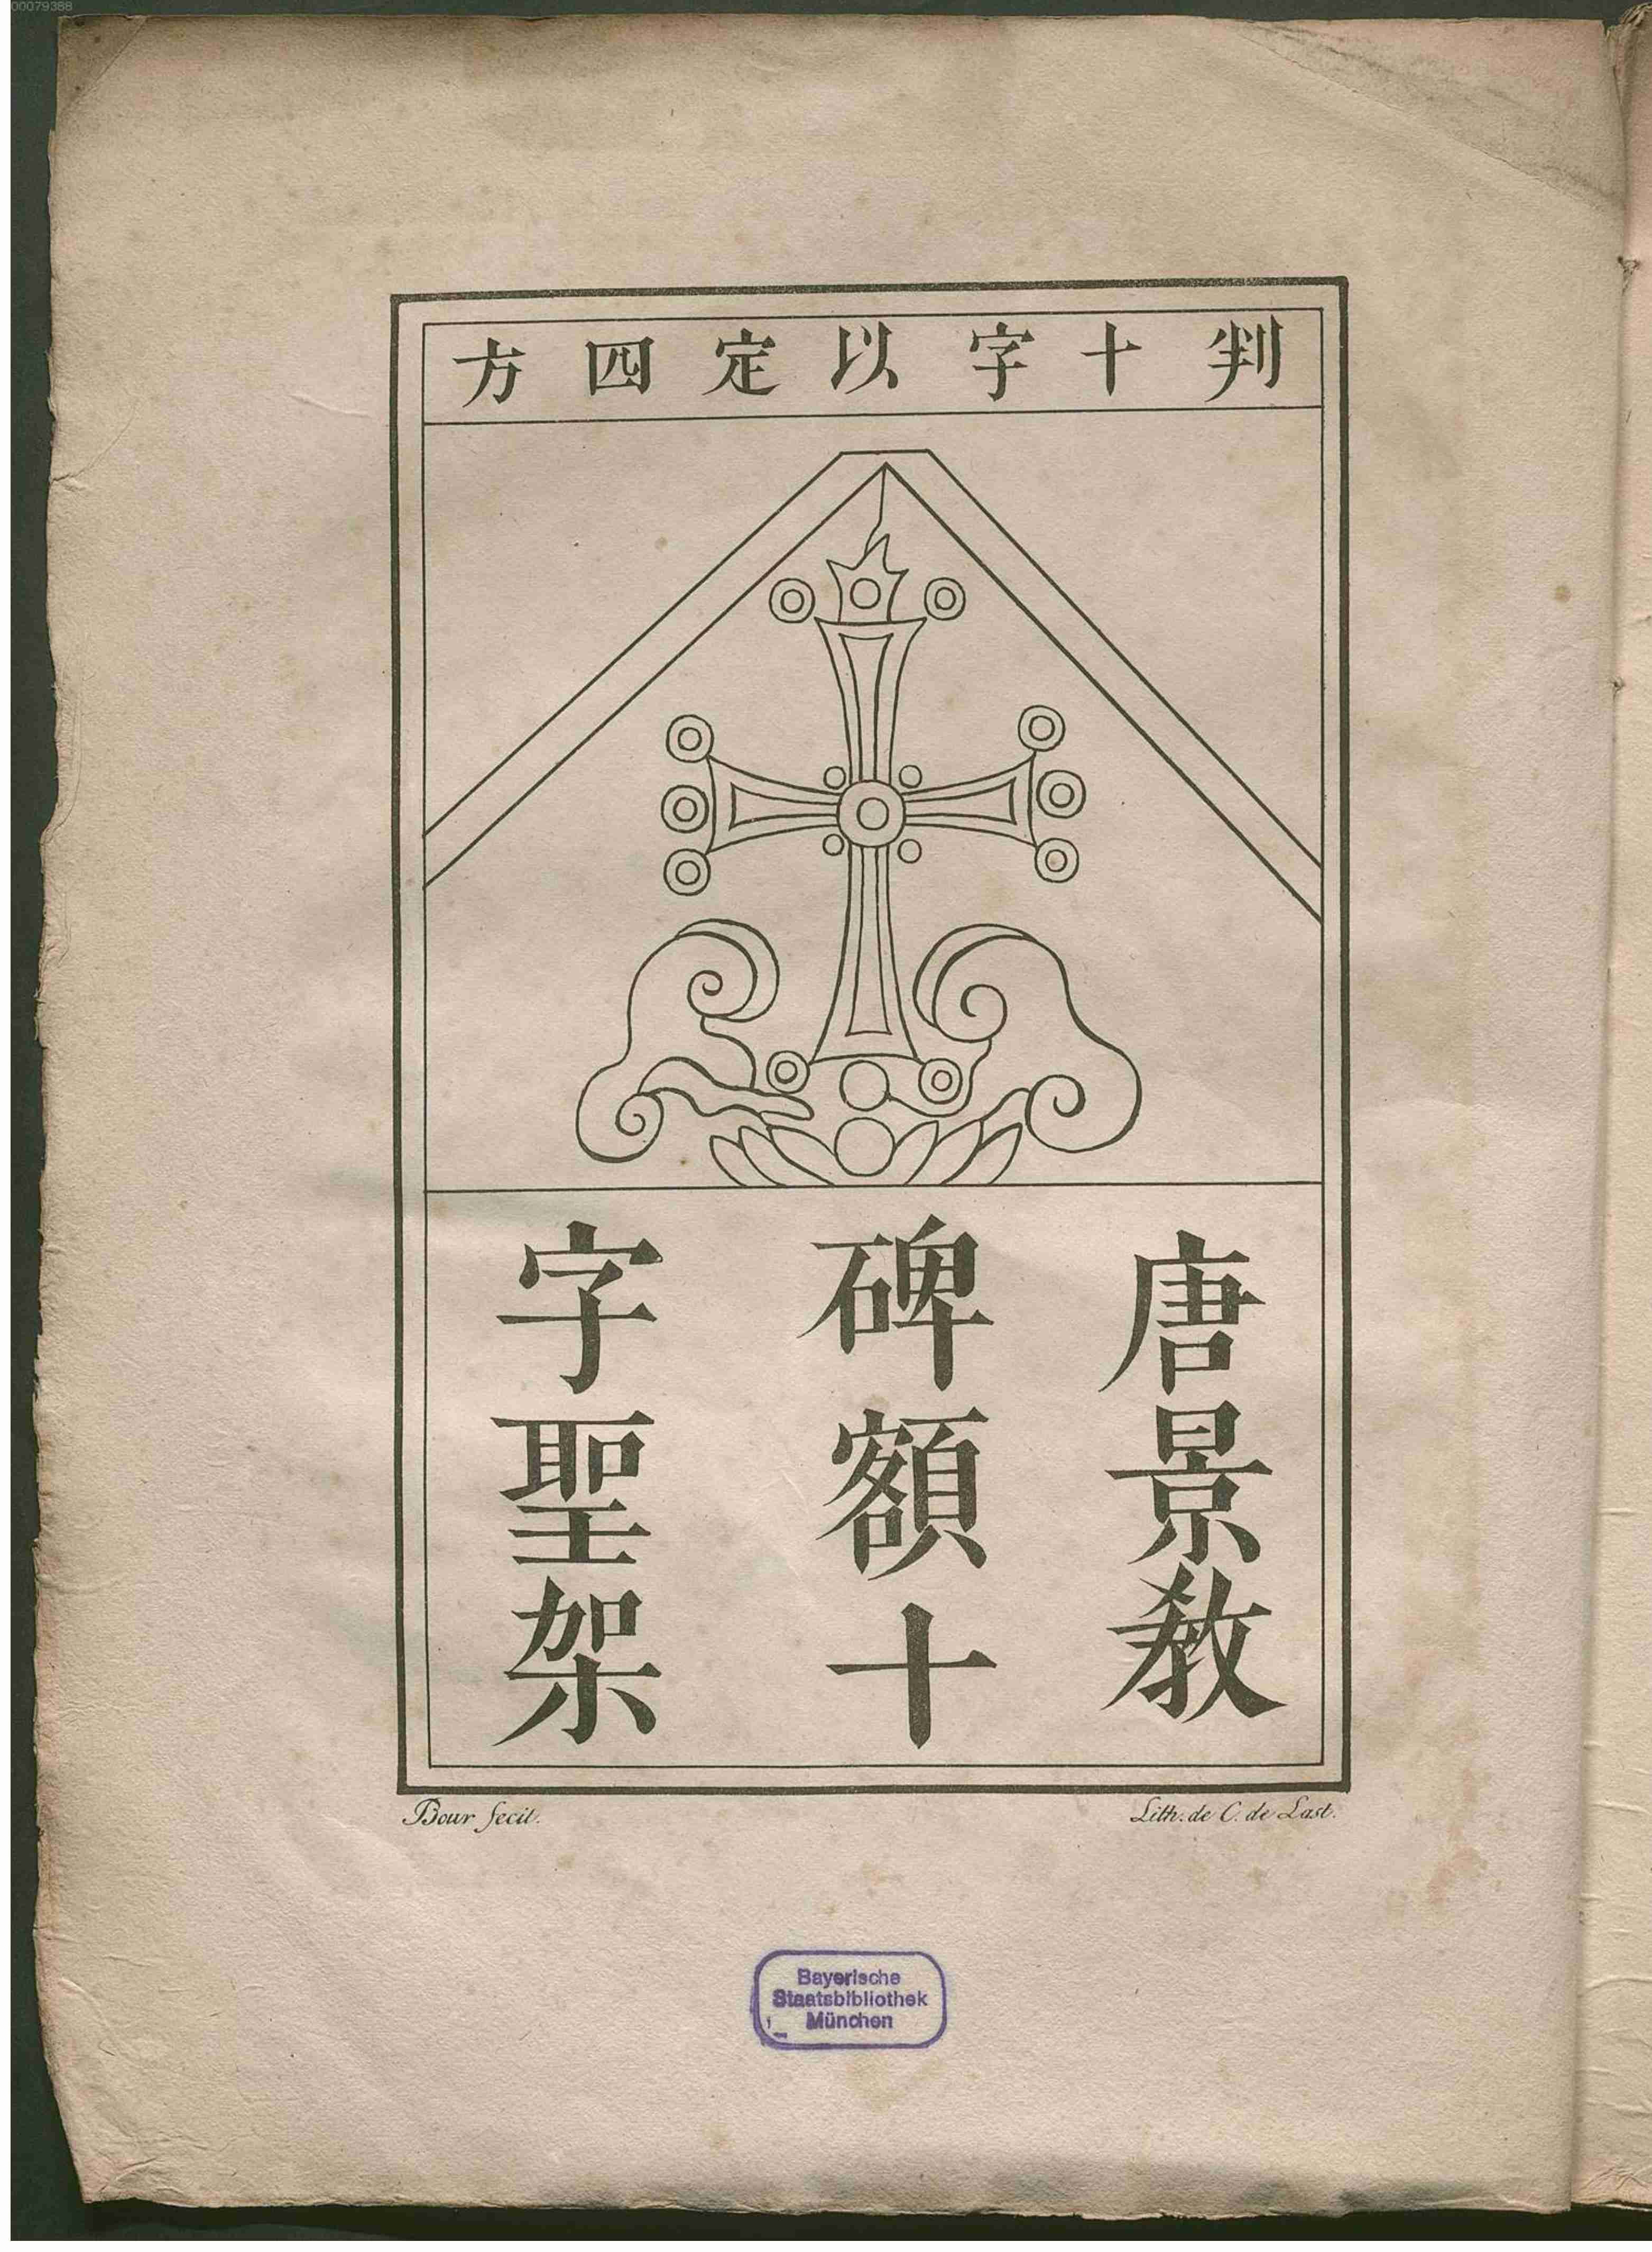 00079388
判十字以定四方
唐景教
碑額十
字聖架
Bour fecit.
Lith. de C. de Last.
Bayerische
Staatsbibliothek
München